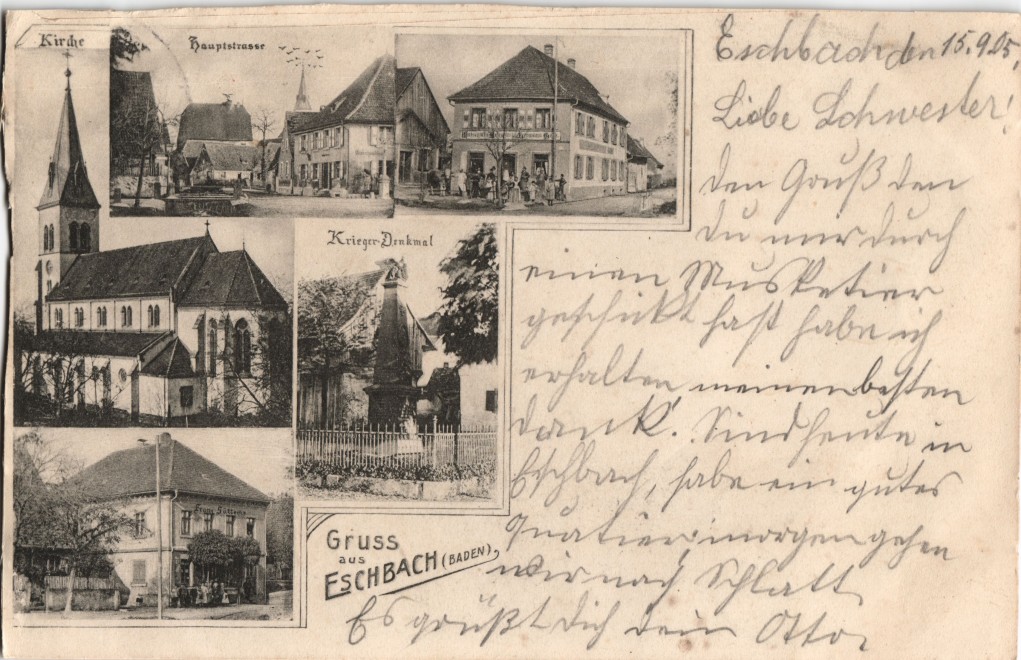 Kirche
Hauptstrasse
Krieger-Denkmal
Gruss
aus
ESCHBACH (BADEN)
Eschbach den 15.9.05,
Liebe Schwester!
den Gruß den
du mir durch
einen Musketier
geschickt hast habe ich
erhalten meinen besten
dank! Sind heute in
Eschbach, habe ein gutes
Quatier, morgen gehen
wir nach Schlatt
Es grüßt dich dein Otto